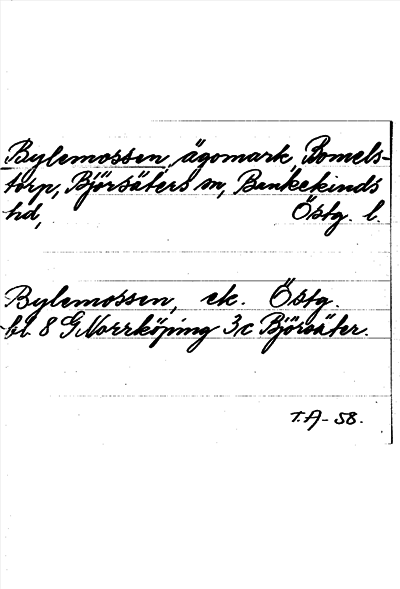 Bylemossen, ägomark, Romels-
torp, Björsäters sn, Bankekinds
hd, Östg. l.
Bylemossen, ek. Östg.
bl. 8 G Norrköping 3c Björsäter.
T.A-58.